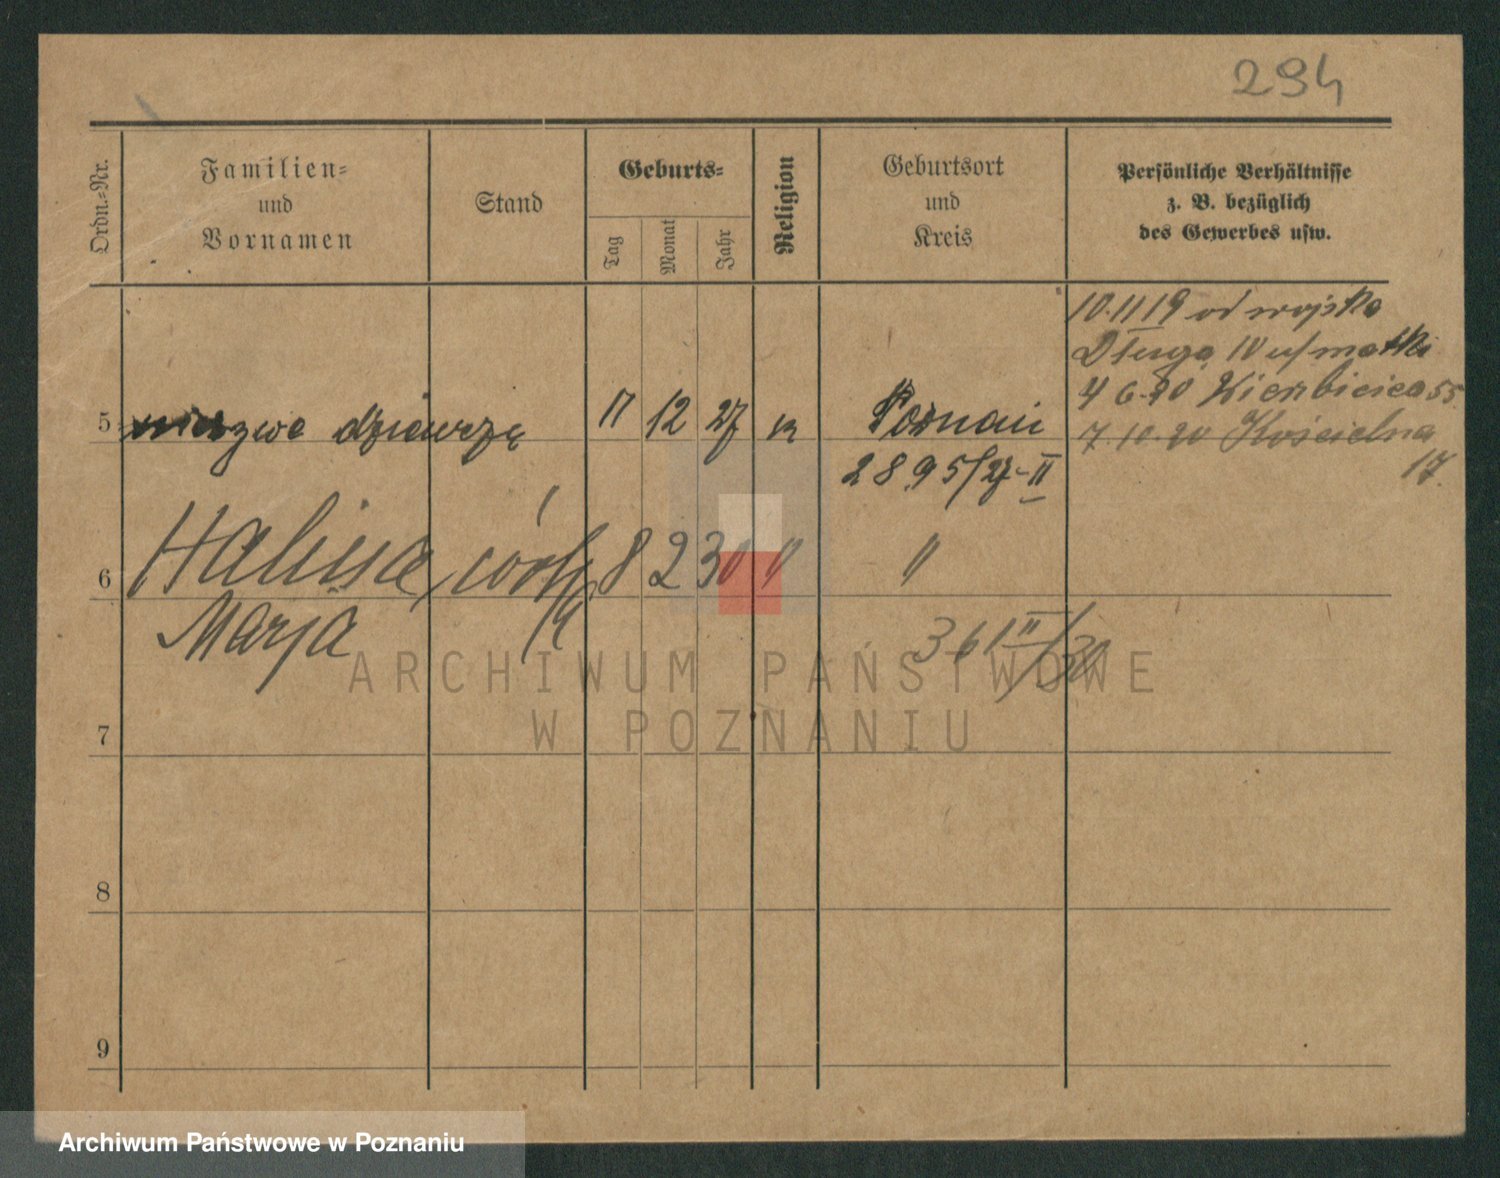 294
Ordn.-Nr.
Familien-
und
Vornamen
Stand
Geburts-
Tag
Monat
Jahr
Religion
Geburtsort
und
Kreis
Persönliche Verhältnisse
z. B. bezüglich
des Gewerbes usw.
10.11 19 od wojska
Długa 10 u/matki
4 6.20 Wierzbięcice 55
7.10.20 Kościelna
17.
5 dziewczę 17 12 27 Poznań
2895/27-II
6 Halina, córka 8 2 30 " "
Marja
361 II/30
7
8
9
ARCHIWUM PAŃSTWOWE
W POZNANIU
Archiwum Państwowe w Poznaniu